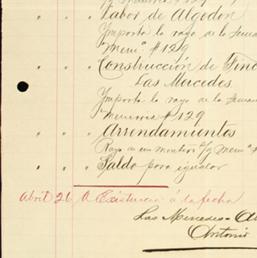 " Labor de Algodon
Importe la raya de la
Memª #129
" " Construcción de Finc
Las Mercedes
Importe la raya de la
Memoria #129
" " Arrendamientos
Memª #
" " Saldo para igualar
Abril 26 A Existencia á la fecha
Las Mercedes-
Antonio